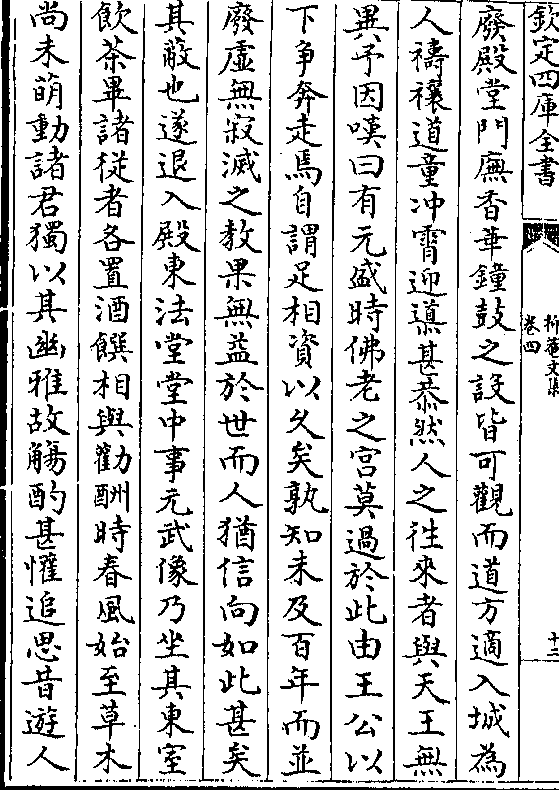 欽定四庫全書
柘菴文集
卷四
十三
廢殿堂門廡香華鐘鼓之設皆可觀而道方適入城為
人禱禳道童冲霄迎導甚恭然人之往來者與天王無
異予因嘆曰有元盛時佛老之宫莫過於此由王公以
下争奔走焉自謂足相資以久矣孰知未及百年而並
廢虚無寂滅之教果無益於世而人猶信向如此甚矣
其蔽也遂退入殿東法堂堂中事元武像乃坐其東室
飲茶畢諸従者各置酒饌相與勸酬時春風始至草木
尚未萌動諸君獨以其幽雅故觴酌甚懽追思昔遊人